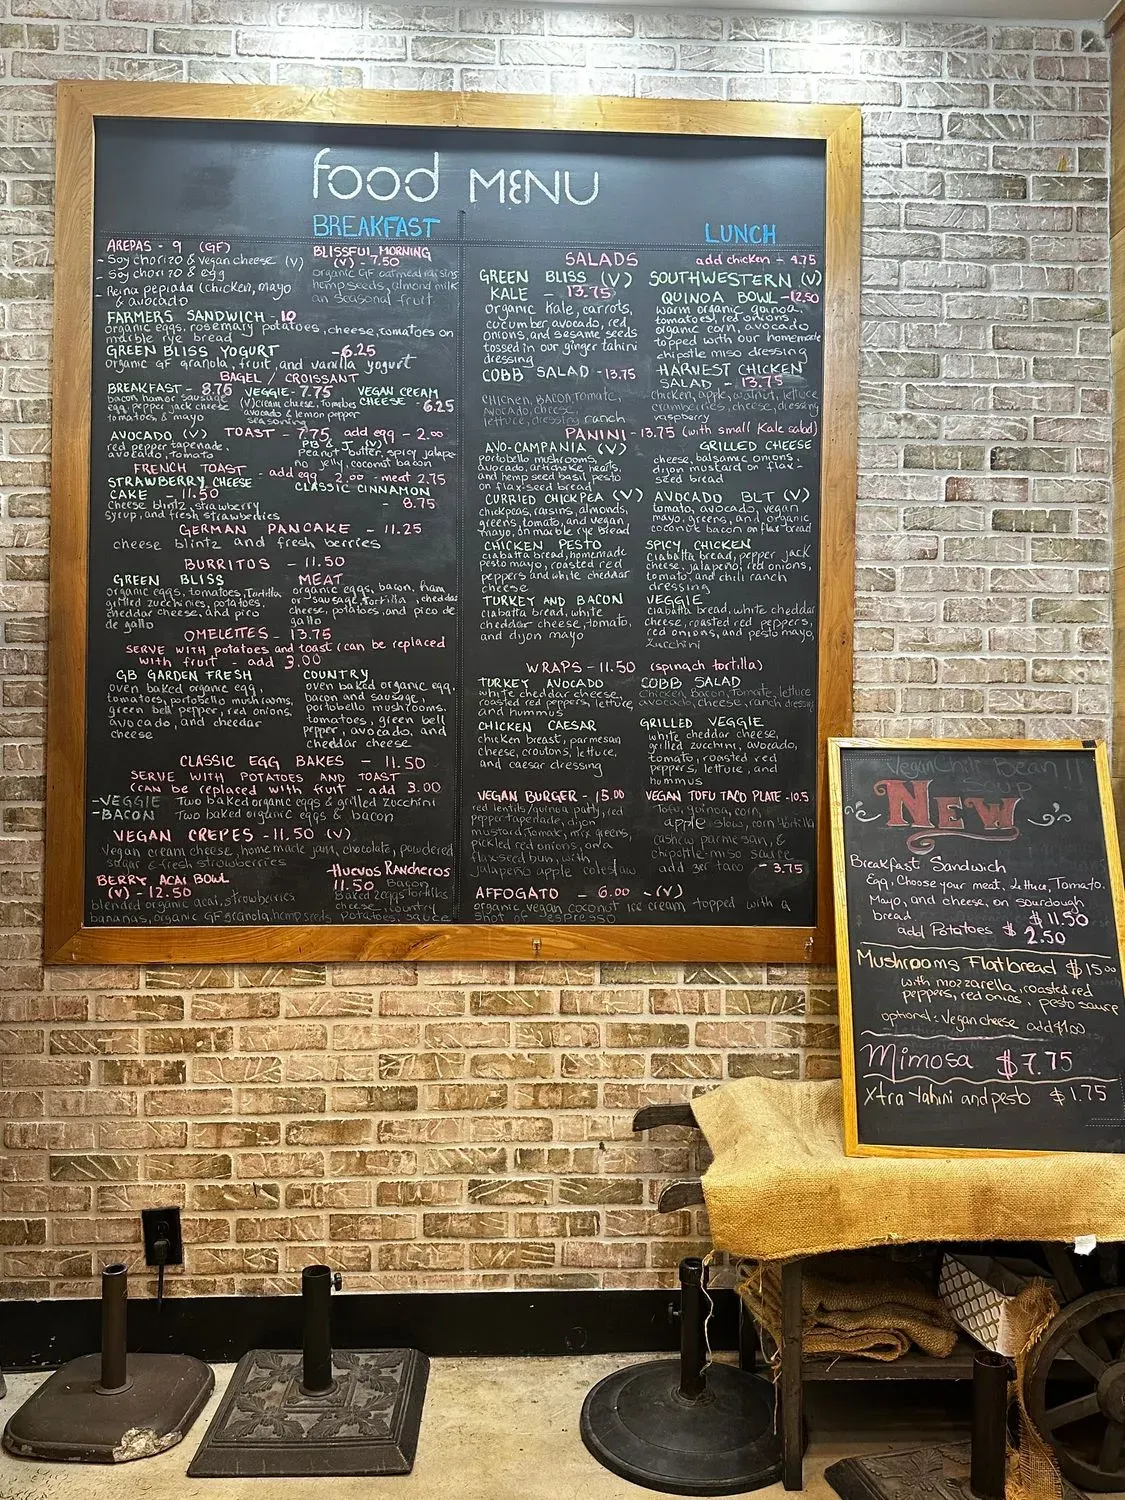 food MENU
BREAKFAST
AREPAS - 9 (GF)
- Soy chorizo & vegan cheese (V)
- Soy chorizo & egg
- Reina pepiada (chicken, mayo
& avocado
BLISSFUL MORNING
(V) - 7.50
organic GF oatmeal raisins
hemp seeds, almond milk
an seasonal fruit.
FARMERS SANDWICH - 10
organic eggs, rosemary potatoes, cheese, tomatoes on
marble rye bread
GREEN BLISS YOGURT - 6.25
organic GF granola, fruit, and vanilla yogurt
BAGEL / CROISSANT
BREAKFAST - 8.75
bacon hamor sausage
egg, pepper jack cheese
tomatoes, & mayo
VEGGIE - 7.75
(V) cream cheese, Tomatoes
avocado & lemon pepper
seasoning
VEGAN CREAM
CHEESE - 6.25
TOAST - 7.75 add egg - 2.00
AVOCADO (V)
red pepper tapenade,
avocado, tomato
PB & J (V)
Peanut butter, spicy jalape-
no jelly, coconut bacon
FRENCH TOAST - add egg - 2.00 - meat 2.75
STRAWBERRY CHEESE
CAKE - 11.50
Cheese blintz, strawberry
syrup, and fresh strawberries
CLASSIC CINNAMON
- 8.75
GERMAN PANCAKE - 11.25
cheese blintz and fresh berries
BURRITOS - 11.50
GREEN BLISS
organic eggs, tomatoes, Tortilla
grilled zucchinies, potatoes,
cheddar cheese, and pico
de gallo
MEAT
organic eggs, bacon, ham
or sausage, tortilla, cheddar
cheese, potatoes, and pico de
gallo
OMELETTES - 13.75
SERVE WITH potatoes and toast (can be replaced
with fruit - add 3.00
GB GARDEN FRESH
oven baked organic egg,
tomatoes, portobello mushrooms,
green bell pepper, red onions,
avocado, and cheddar
cheese
COUNTRY
oven baked organic egg,
bacon and sausage,
portobello mushrooms,
tomatoes, green bell
pepper, avocado, and
cheddar cheese
CLASSIC EGG BAKES - 11.50
SERVE WITH POTATOES AND TOAST
(CAN be replaced with fruit - add 3.00
- VEGGIE Two baked organic eggs & grilled zucchini
- BACON Two baked organic eggs & bacon
VEGAN CREPES - 11.50 (V)
Vegan cream cheese, home made jam, chocolate, powdered
sugar & fresh strawberries
BERRY ACAI BOWL
(V) - 12.50
blended organic acai, strawberries
bananas, organic GF granola, hemp seeds
Huevos Rancheros
11.50 Bacon
Baked 2 eggs Tortillas
cheese, country
Potatoes, sauce
LUNCH
SALADS add chicken - 4.75
GREEN BLISS (V)
KALE - 13.75
organic kale, carrots,
cucumber avocado, red
onions, and sesame seeds
tossed in our ginger tahini
dressing
SOUTHWESTERN (V)
QUINOA BOWL - 12.50
warm organic quinoa,
tomatoes, red onions,
organic corn, avocado
topped with our homemade
chipotle miso dressing
COBB SALAD - 13.75
CHICKEN, BACON, TOMATO,
AVOCADO, cheese,
lettuce, dressing ranch
HARVEST CHICKEN
SALAD - 13.75
chicken, apple, walnut, lettuce
cranberries, cheese, dressing
raspberry
PANINI - 13.75 (with small Kale salad)
AVO-CAMPANIA (V)
portobello mushrooms,
avocado, artichoke hearts,
and hemp seed basil pesto
on flax-seed bread
GRILLED CHEESE
cheese, balsamic onions,
dijon mustard on flax-
seed bread
CURRIED CHICKPEA (V)
chickpeas, raisins, almonds,
greens, tomato, and vegan
mayo, on marble rye Bread
AVOCADO BLT (V)
tomato, avocado, vegan
mayo, greens, and organic
coconut bacon on flax bread
CHICKEN PESTO
ciabatta bread, homemade
pesto mayo, roasted red
peppers and white cheddar
cheese
SPICY CHICKEN
ciabatta bread, pepper jack
cheese, jalapeño, red onions,
tomato, and chili ranch
dressing
TURKEY AND BACON
ciabatta bread, white
cheddar cheese, tomato,
and dijon mayo
VEGGIE
ciabatta bread, white cheddar
cheese, roasted red peppers,
red onions, and pesto mayo,
zucchini
WRAPS - 11.50 (spinach tortilla)
TURKEY AVOCADO
white cheddar cheese,
roasted red peppers, lettuce
and hummus
COBB SALAD
Chicken, Bacon, Tomato, lettuce
avocado, cheese, ranch dressing
CHICKEN CAESAR
chicken breast, parmesan
cheese, croutons, lettuce,
and caesar dressing
GRILLED VEGGIE
white cheddar cheese,
grilled zucchini, avocado,
tomato, roasted red
peppers, lettuce, and
hummus
VEGAN BURGER - 15.00
red lentils/quinoa patty, red
pepper tapenade, dijon
mustard, Tomato, mix greens,
pickled red onions, on a
flaxseed bun, with
jalapeño apple coleslaw
VEGAN TOFU TACO PLATE - 10.5
Tofu, quinoa, corn,
apple slaw, corn tortilla
cashew parmesan, &
chipotle-miso sauce
add 3er taco - 3.75
AFFOGATO - 6.00 - (V)
organic vegan coconut ice cream topped with a
shot of espresso
Vegan Chili Bean
SOUP
NEW
Breakfast Sandwich
Egg, Choose your meat, Lettuce, Tomato.
Mayo, and cheese, on sourdough
bread $11.50
add Potatoes $ 2.50
Mushrooms Flatbread $15.00
with mozzarella, roasted red
peppers, red onions, pesto sauce
optional: Vegan cheese add $1.00
Mimosa $7.75
Xtra tahini and pesto $1.75